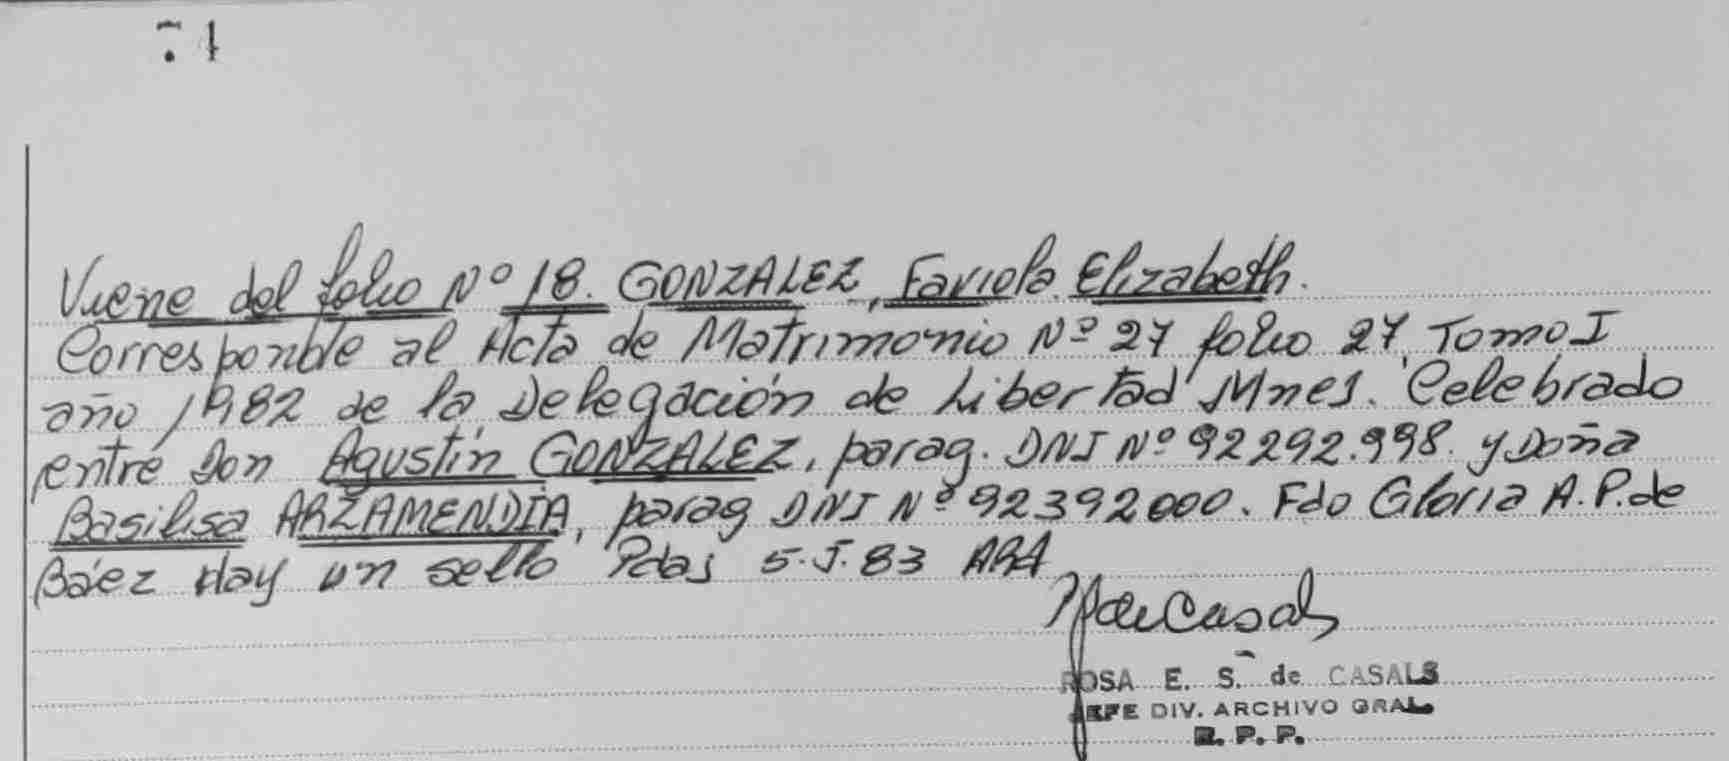 Viene del folio Nº 18. GONZALEZ, Faviola Elizabeth.
Corresponde al Acta de Matrimonio Nº 27 folio 27 Tomo I
año 1982 de la Delegación de Libertad Mnes. Celebrado
entre Don Agustín GONZALEZ, parag. DNI Nº 92292.998. y Doña
Basilisa ARZAMENDIA, parag DNI Nº 92392000. Fdo Gloria A.P. de
Báez Hay un sello Pdas 5.I.83 ARA
ROSA E. S. de CASALS
JEFE DIV. ARCHIVO GRAL.
R. P. P.